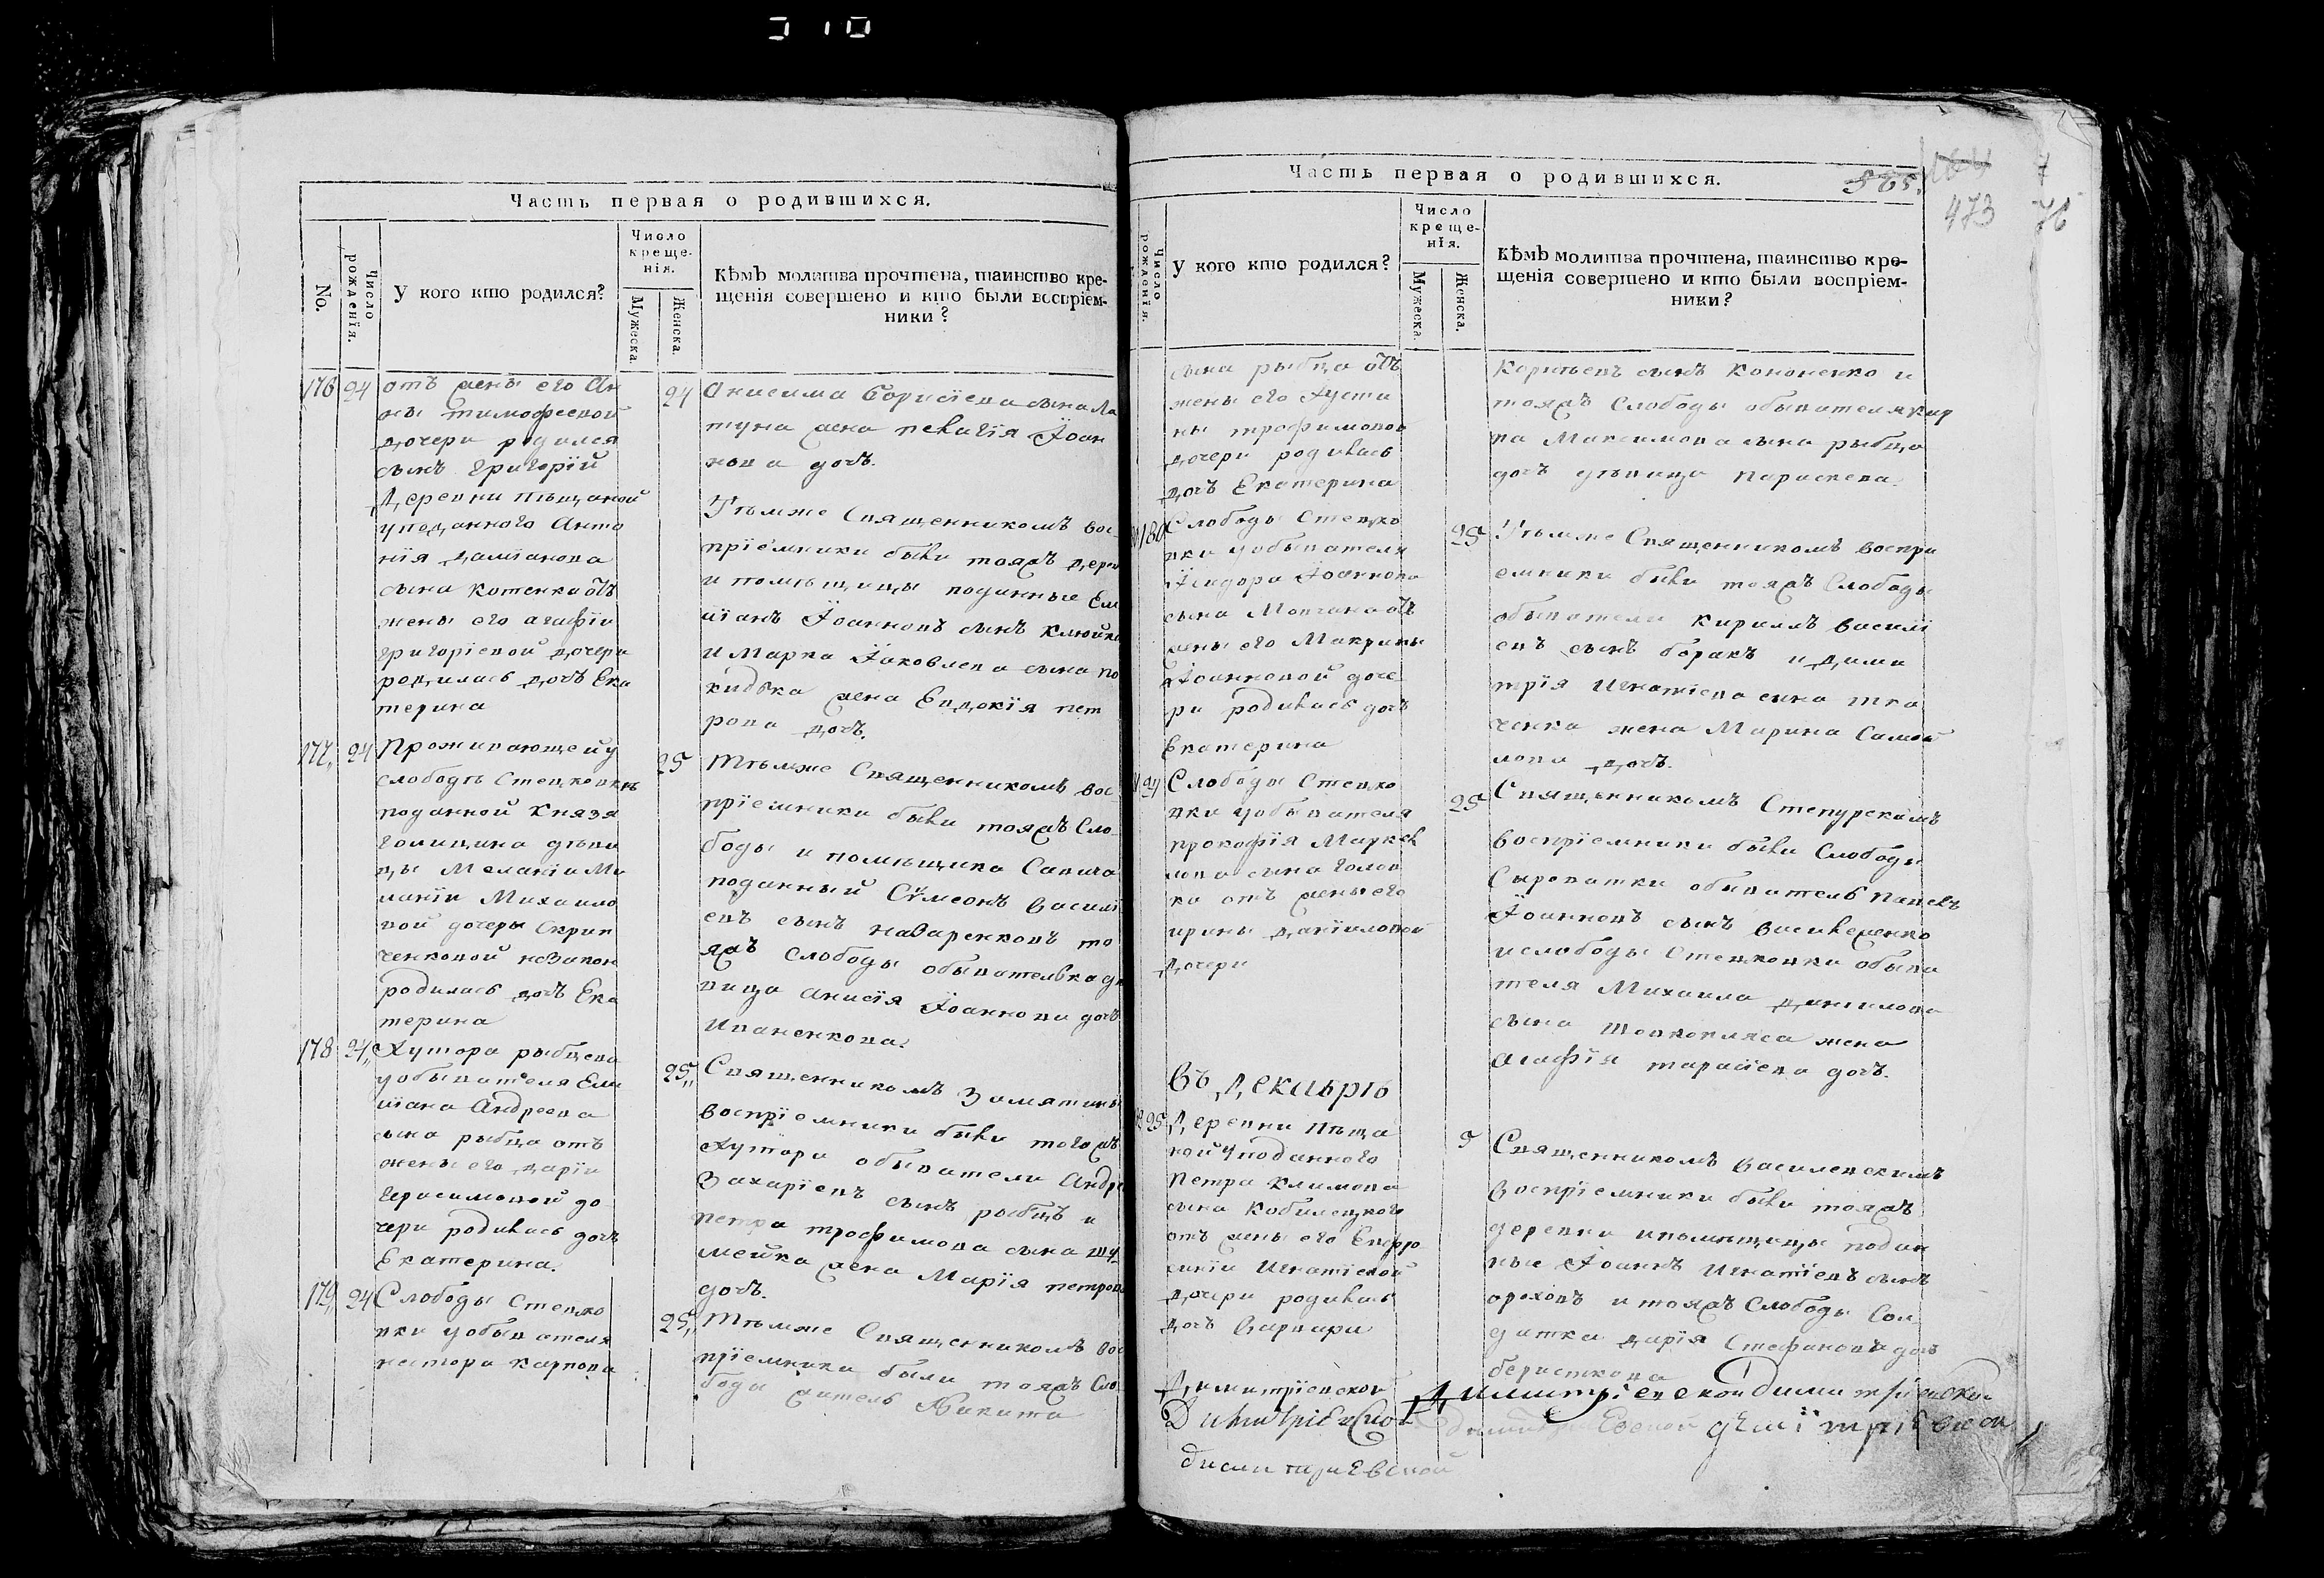 310
Часть первая о родившихся.
No.
Число рожденїя.
У кого кто родился?
Число креще-
нїя.
Мужеска.
Женска.
Кѣмъ молитва прочтена, таинство кре-
щенїя совершено и кто были воспрїем-
ники?
176 24
отъ жены его Ан
ны тимофеевой
дочери родился
сынъ Григорїй
Деревни Пѣщаной
у поданного Анто
нїя Дамїанова
сына Котенка отъ
жены его агафїи
григорїевой дочери
родилась дочь Ека
терина
24
Анисима Борисїева сына Ла
туна жена пелагїя Іоан
нова дочь.
Тѣмже Священникомъ вос
прїемники были тояжъ дерев
и помѣщицы поданные Ем
илїанъ Іоанновъ сынъ Клюйко
и Марка Іаковлева сына по
кидька жена Евдокїя пет
рова дочь.
177 24
Проживающей у
слободѣ Стецковкѣ
поданной Князя
Голицина дѣви
цы Меланїи Ми
Михаило
вой дочеры Скрип
ченковой незакон
родилась дочь Ека
терина
25
Тѣмже Священникомъ вос
прїемники были тояжъ Сло
боды и помѣщика Савича
поданный Сѵмеонъ Василї
евъ сынъ Назаренковъ то
яжъ слободы обывателька дѣ
вица Анисїя Іоаннова дочь
Иваненкова.
178 24
Хутора рыбцева
у обывателя Еми
лїана Андреева
сына рыбца отъ
жены его Дарїи
Герасимовой до
чери родилась дочь
Екатерина.
25
Священникомъ Замятинымъ
воспрїемники были тогожъ
Хутора обыватели Андрей
Захарїевъ сынъ рыбцъ и
петра трофимова сына шу
мейка жена Марїя петрова
дочь.
179 24
Слободы Стецко
вки у обывателя
нестора карпова
25
Тѣмже Священникомъ вос
прїемники были тояжъ Сло
боды житель Никита
Часть первая о родившихся.
565.
473
7
76
Число рожденїя.
У кого кто родился?
Число креще-
нїя.
Мужеска.
Женска.
Кѣмъ молитва прочтена, таинство кре-
щенїя совершено и кто были воспрїем-
ники?
сына рыбца отъ
жены его Хусти
ны трофимовой
дочери родилась
дочь Екатерина
Корнѣевъ сынъ Кононенко и
тояжъ Слободы обывателя кир
ва Максимова сына рыбца
дочь дѣвица параскева.
180
Слободы Стецко
вки у обывателя
Ісидора Іоаннова
сына Мовчана отъ
жены его Макрины
Іоанновой доче
ри родилась дочь
Екатерина
25
Тѣмже Священникомъ воспри
емники были тояжъ Слободы
обыватели Кириллъ Василї
евъ сынъ боракъ и Дими
трїя Игнатїева сина тка
ченка жена Марина Самой
лова дочь.
24
Слободы Стецко
вки у обывателя
прокофїя
сына Голов
ка отъ жены его
ирины Данїиловой
дочери
25
Священникомъ Степурскимъ
воспрїемники были Слободы
Сыроватки обыватель Павелъ
Іоанновъ сынъ Василсченко
и слободы Стецковки обыва
теля Михаила Данилова
сына жена
агафїя тарасїева дочь.
Въ Декабрѣ
Деревни Пѣща
ной у поданного
Петра Климова
сына Кобилецкого
отъ жены его Евфро
синїи Игнатїевой
дочери родилась
дочь Варвара
5
Священникомъ Василевскимъ
воспрїемники были тояжъ
деревни и помѣщицы подан
ные Іоаннъ Игнатїевъ сынъ
ореховъ и тояжъ Слободы Сол
датка Дарїя Стефанова дочь
Димитрїевской
Димитрїевской
димитриевской
Димитрїевской димитрїевской